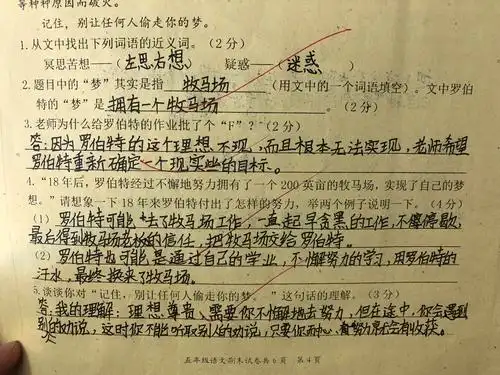 等种种原因而破灭。
记住，别让任何人偷走你的梦。
1.从文中找出下列词语的近义词。（2分）
冥思苦想——（左思右想） 疑惑——（迷惑）
2.题目中的“梦”其实是指 牧马场 （用文中的一个词语填空）。文中罗伯
特的“梦”是 拥有一个牧马场 。（2分）
3.老师为什么给罗伯特的作业批了个“F”？（2分）
答：因为罗伯特的这个理想不现，而且根本无法实现，老师希望
罗伯特重新确定一个现实些的目标。
4.“18年后，罗伯特经过不懈地努力拥有了一个200英亩的牧马场，实现了自己的梦
想。”请想象一下18年来罗伯特付出了怎样的努力，举两个例子说明一下。（4分）
（1）罗伯特可能去了牧马场工作，一直起早贪黑的工作，不停歇，
最后得到牧马场老板的信任，把牧马场交给罗伯特。
（2）罗伯特也可能是通过自己的学业，不懈努力的学习，用罗伯特的
汗水，最终换来了牧马场。
5.谈谈你对“记住，别让任何人偷走你的梦。”这句话的理解。（3分）
答：我的理解：理想尊贵，需要你不懈地去努力，但在途中，你会遇到
别人的劝说，这时你不能听取别人的劝说，只要有努力就会有收获。
五年级语文期末试卷共6页 第4页